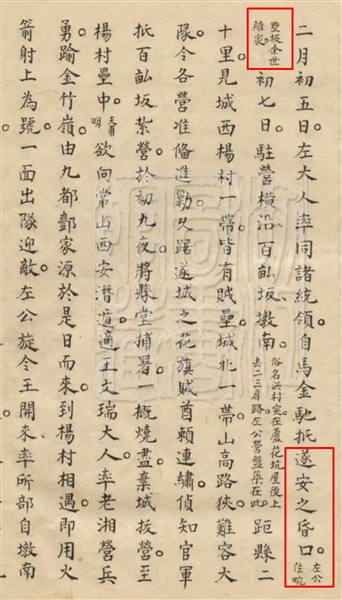 二月初五日。左大人率同諸統領自馬金馳抵遂安之昏口。左公住畹
墅坂余世維家。初七日。駐營橫沿百畝坂墩南。俗名洪村实在蘆花坑屋後上去二三肩路左公營盤柴在此。距縣二
十里見城西楊村一帶皆有賊壘城北一帶山高路狹難容大
隊令各營准備進勦久踞遂城之花旗賊酋賴連繡偵知官軍
抵百畝坂紮營。於初九夜將縣堂捕署一概燒盡棄城拔營至
楊村壘中。天甫明欲向常山西安潛遁。適王文瑞大人率老湘營兵
勇踰金竹嶺。由九都鄷家源於是日而來。到楊村相遇。即用火
箭射上為號。一面出隊迎敵。左公旋令王開來率所部自墩南